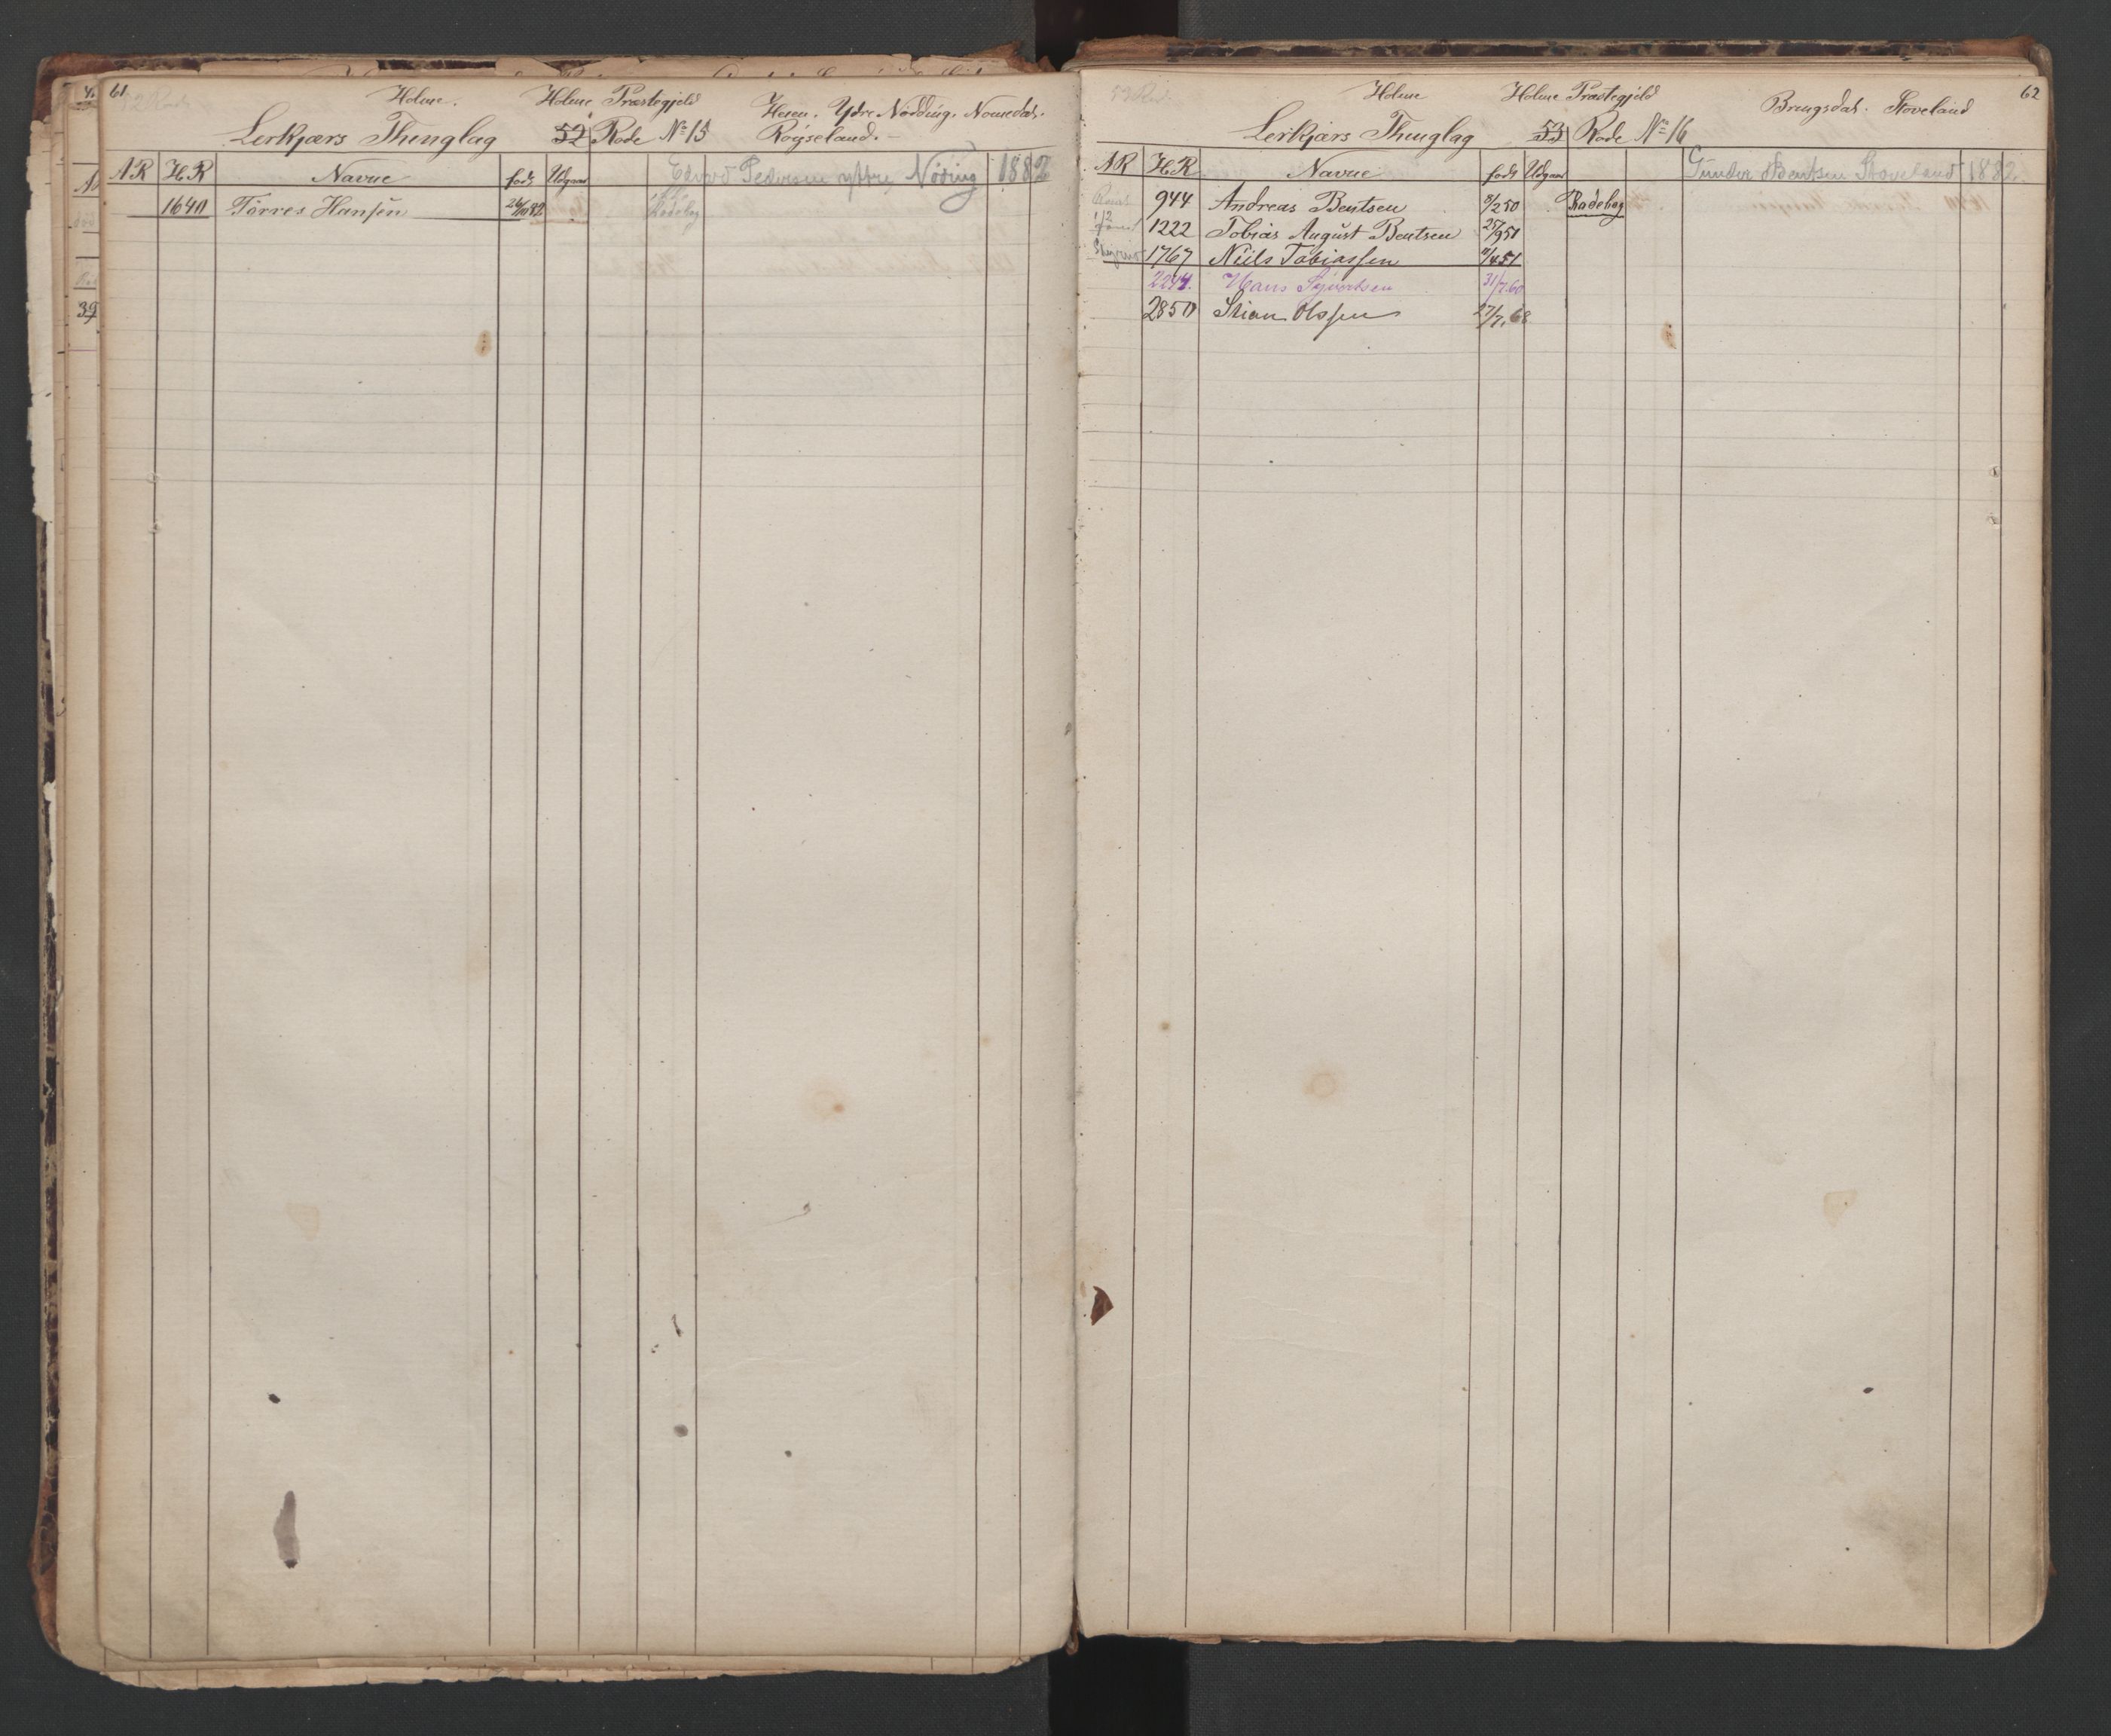 61
Holme. Holme Præstegjeld
Heien. Ydre Nødding. Nomedal.
Lerkjærs Thinglag 52 Rode No 15 Røiseland.
NR HR Navne født Udgaar Edvard Pedersen yttre Nøding 1882
1640 Tørres Hansen Rodebog
39
62
Holme Holme Præstegjeld Bringsdal. Stoveland
Lerkjærs Thinglag 53 Rode No 16
NR HR Navne født Udgaar Gunder Bentsen Stoveland 1882.
944 Andreas Bentsen 8/2 50 Rodebog
1/2 1222 Tobias August Bentsen 25/9 51
1767 Niels Tobiassen 11/4 51
2244. Hans Syvertsen 31/7 60
2850 Stian Olsen 27/7. 68